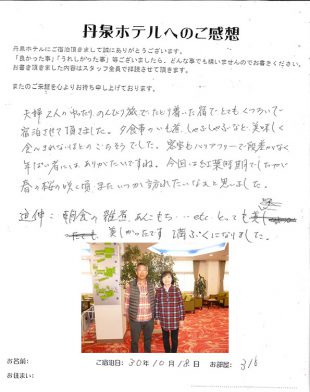 丹泉ホテルへのご感想
丹泉ホテルにご宿泊頂きまして誠にありがとうございます。
「良かった事」「うれしかった事」等ございましたら、どんな事でも構いませんのでお書きください。
お書き頂きました内容はスタッフ全員で拝読させて頂きます。
またのご来館を心よりお待ち申し上げております。
夫婦2人のゆったり、のんびり旅でたどり着いた宿でとてもくつろいで
宿泊させて頂きました。夕食事のいも煮、しゃぶしゃぶなど、美味しく
食べきれないほどのごちそうでした。客室もバリアフリーで段差がなく
年ぱい者にはありがたいですね。今回は紅葉時期でしたが
春の桜の咲く頃またいつか訪れたいなぁと思いました。
追伸：朝食の雑煮、あんこもち…etc. とっても
美しかったです 満ぷくになりました。
お名前: ご宿泊日: 30年10月18日 お部屋: 316
お住まい: